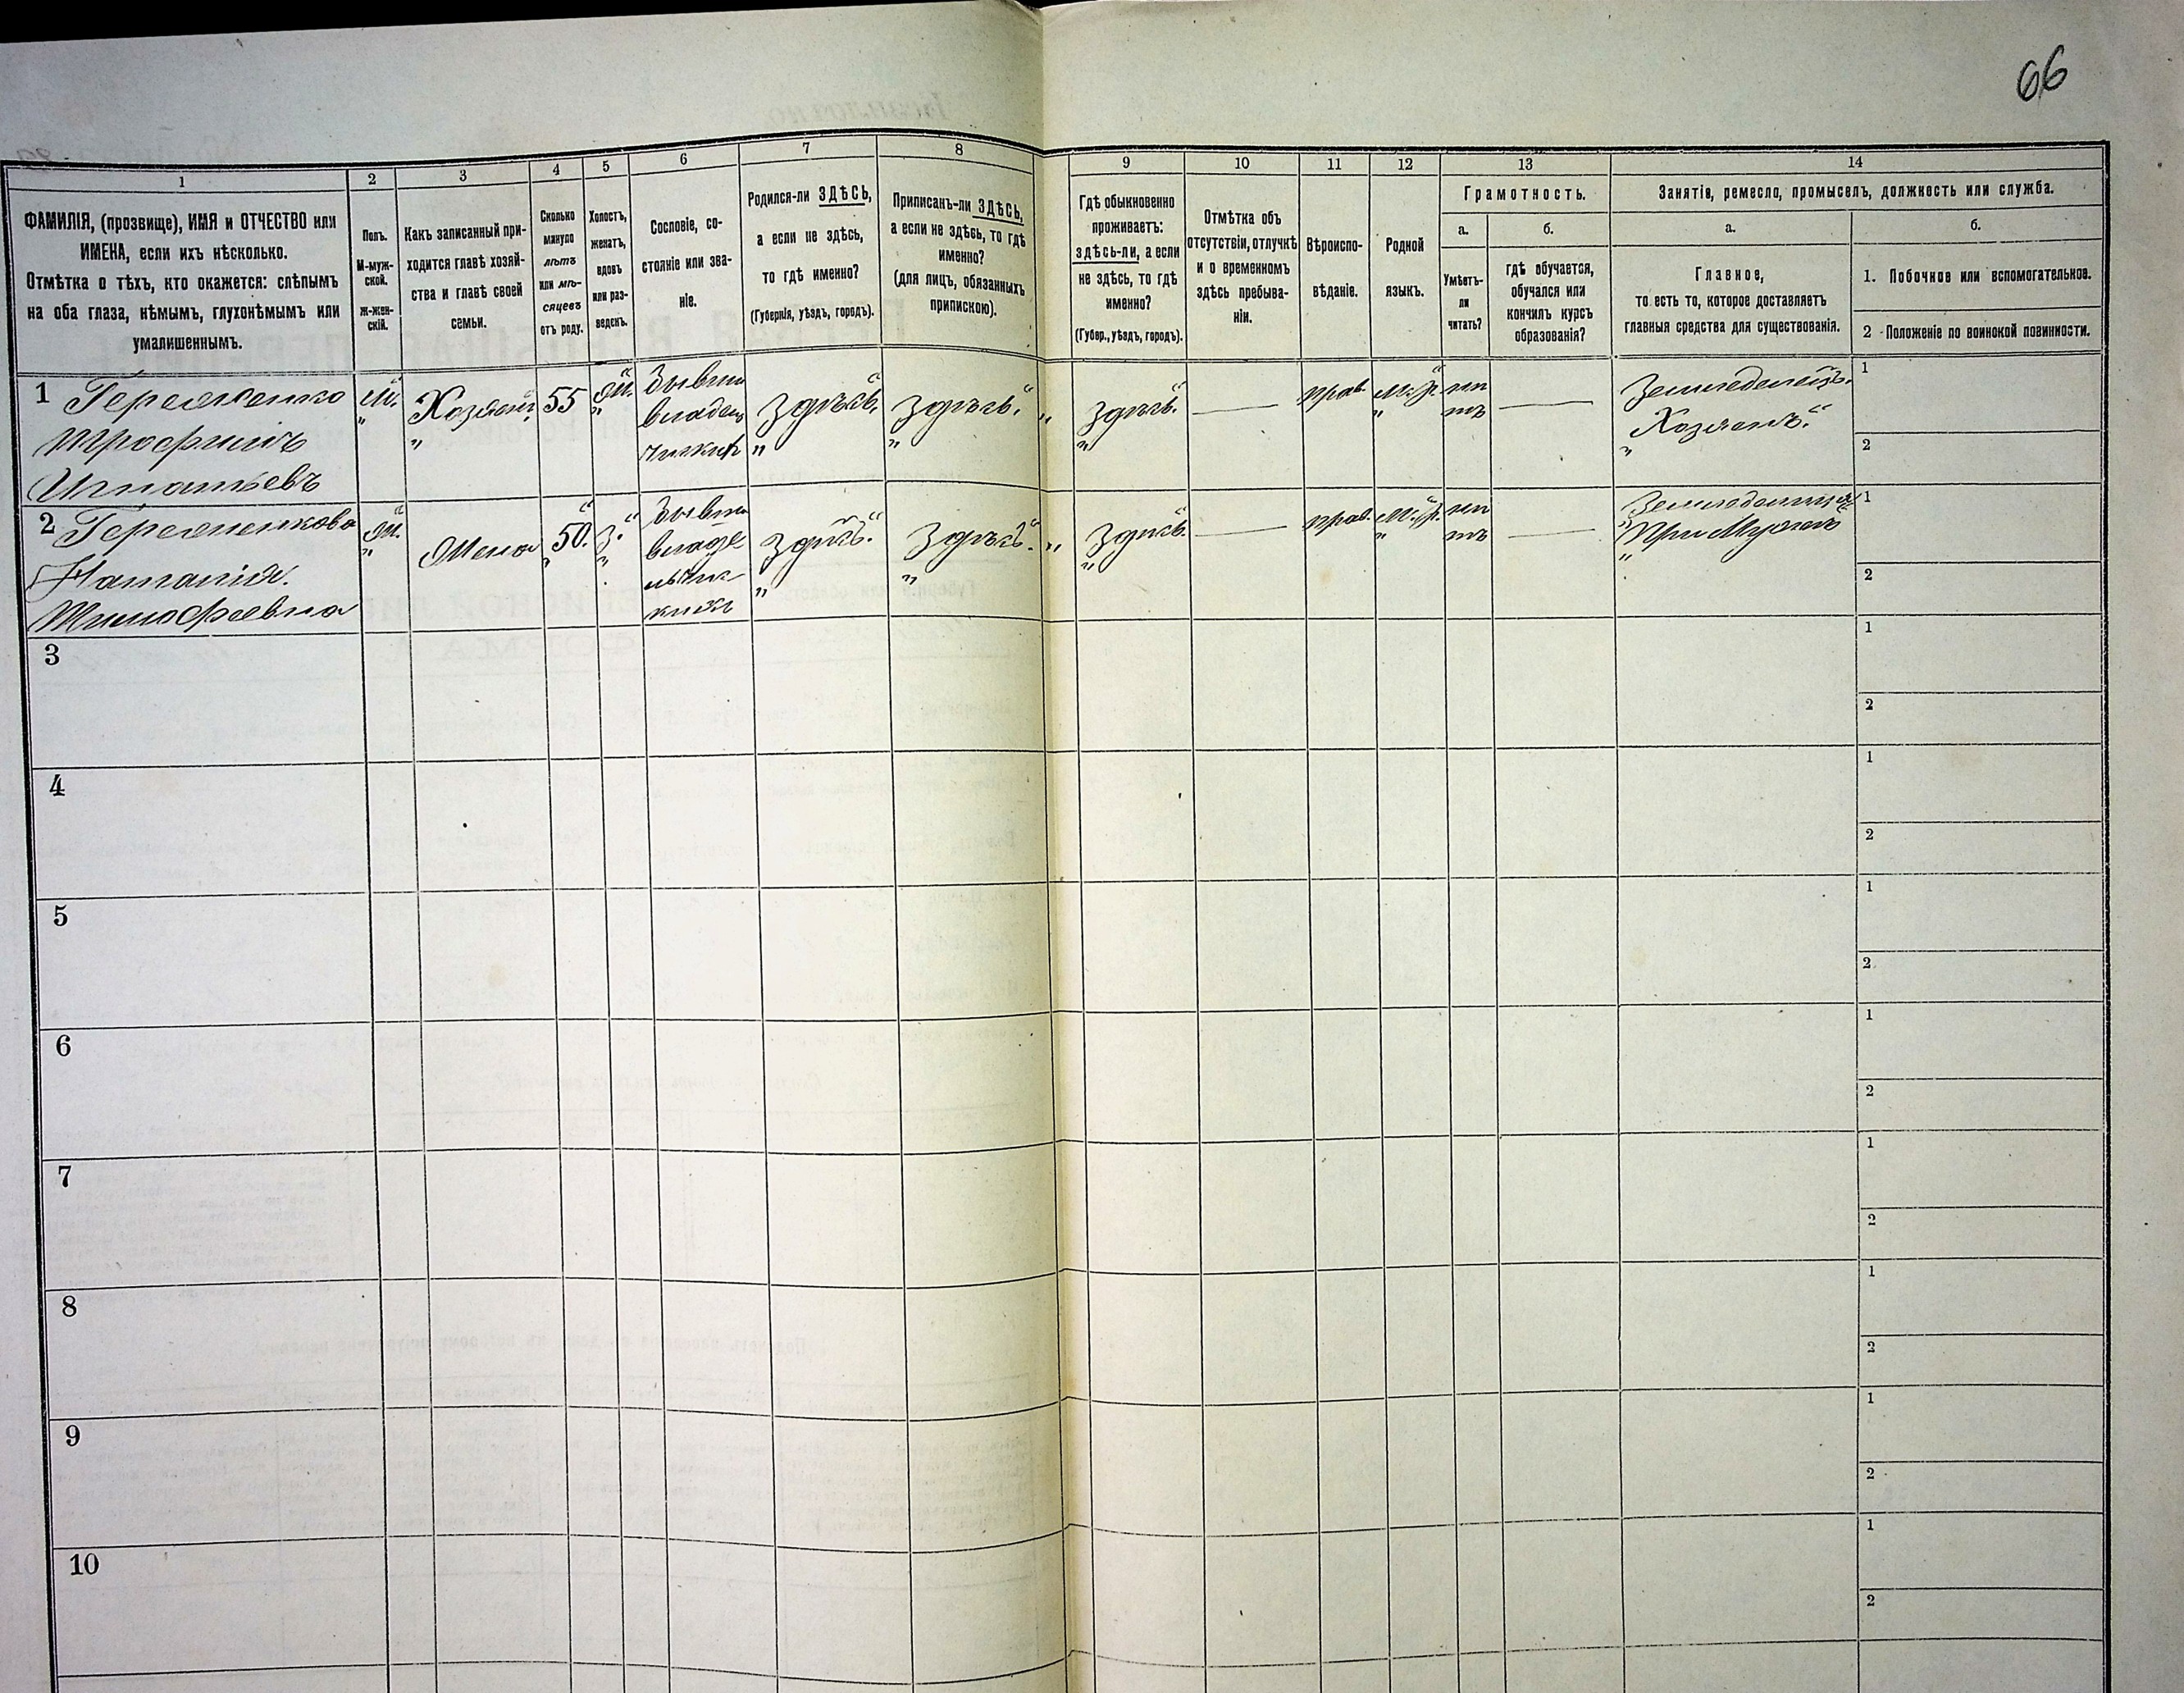 66
1
2
3
4
5
6
7
8
9
10
11
12
13
14
ФАМИЛІЯ, (прозвище), ИМЯ и ОТЧЕСТВО или
ИМЕНА, если ихъ нѣсколько.
Отмѣтка о тѣхъ, кто окажется: слѣпымъ
на оба глаза, нѣмымъ, глухонѣмымъ или
умалишеннымъ.
Полъ.
М-муж-
ской.
Ж-жен-
скій.
Какъ записанный при-
ходится главѣ хозяй-
ства и главѣ своей
семьи.
Сколько
минуло
лѣтъ
или мѣ-
сяцевъ
отъ роду.
Холостъ,
женатъ,
вдовъ
или раз-
веденъ.
Сословіе, со-
стояніе или зва-
ніе.
Родился-ли ЗДѢСЬ,
а если не здѣсь,
то гдѣ именно?
(Губернія, уѣздъ, городъ).
Приписанъ-ли ЗДѢСЬ,
а если не здѣсь, то гдѣ
именно?
(для лицъ, обязанныхъ
припискою).
Гдѣ обыкновенно
проживаетъ:
здѣсь-ли, а если
не здѣсь, то гдѣ
именно?
(Губер., уѣздъ, городъ).
Отмѣтка объ
отсутствіи, отлучкѣ
и о временномъ
здѣсь пребыва-
ніи.
Вѣроиспо-
вѣданіе.
Родной
языкъ.
Грамотность.
а.
Умѣетъ-
ли
читать?
б.
гдѣ обучается,
обучался или
кончилъ курсъ
образованія?
Занятія, ремесло, промыселъ, должность или служба.
а.
Главное,
то есть то, которое доставляетъ
главныя средства для существованія.
б.
1. Побочное или вспомогательное.
2 Положеніе по воинской повинности.
1
Трофимъ
Игнатьевъ
М.
Хозяинъ
55
Ж.
Здѣсь.
Здѣсь.
Здѣсь.
прав.
м. р.
нѣтъ
Хозяинъ.
1
2
2
Наталія.
Тимофеевна
Ж.
Жена
50.
З.
Здѣсь.
Здѣсь.
Здѣсь.
прав.
м. р.
нѣтъ
При Мужѣ
1
2
3
1
2
4
1
2
5
1
2
6
1
2
7
1
2
8
1
2
9
1
2
10
1
2